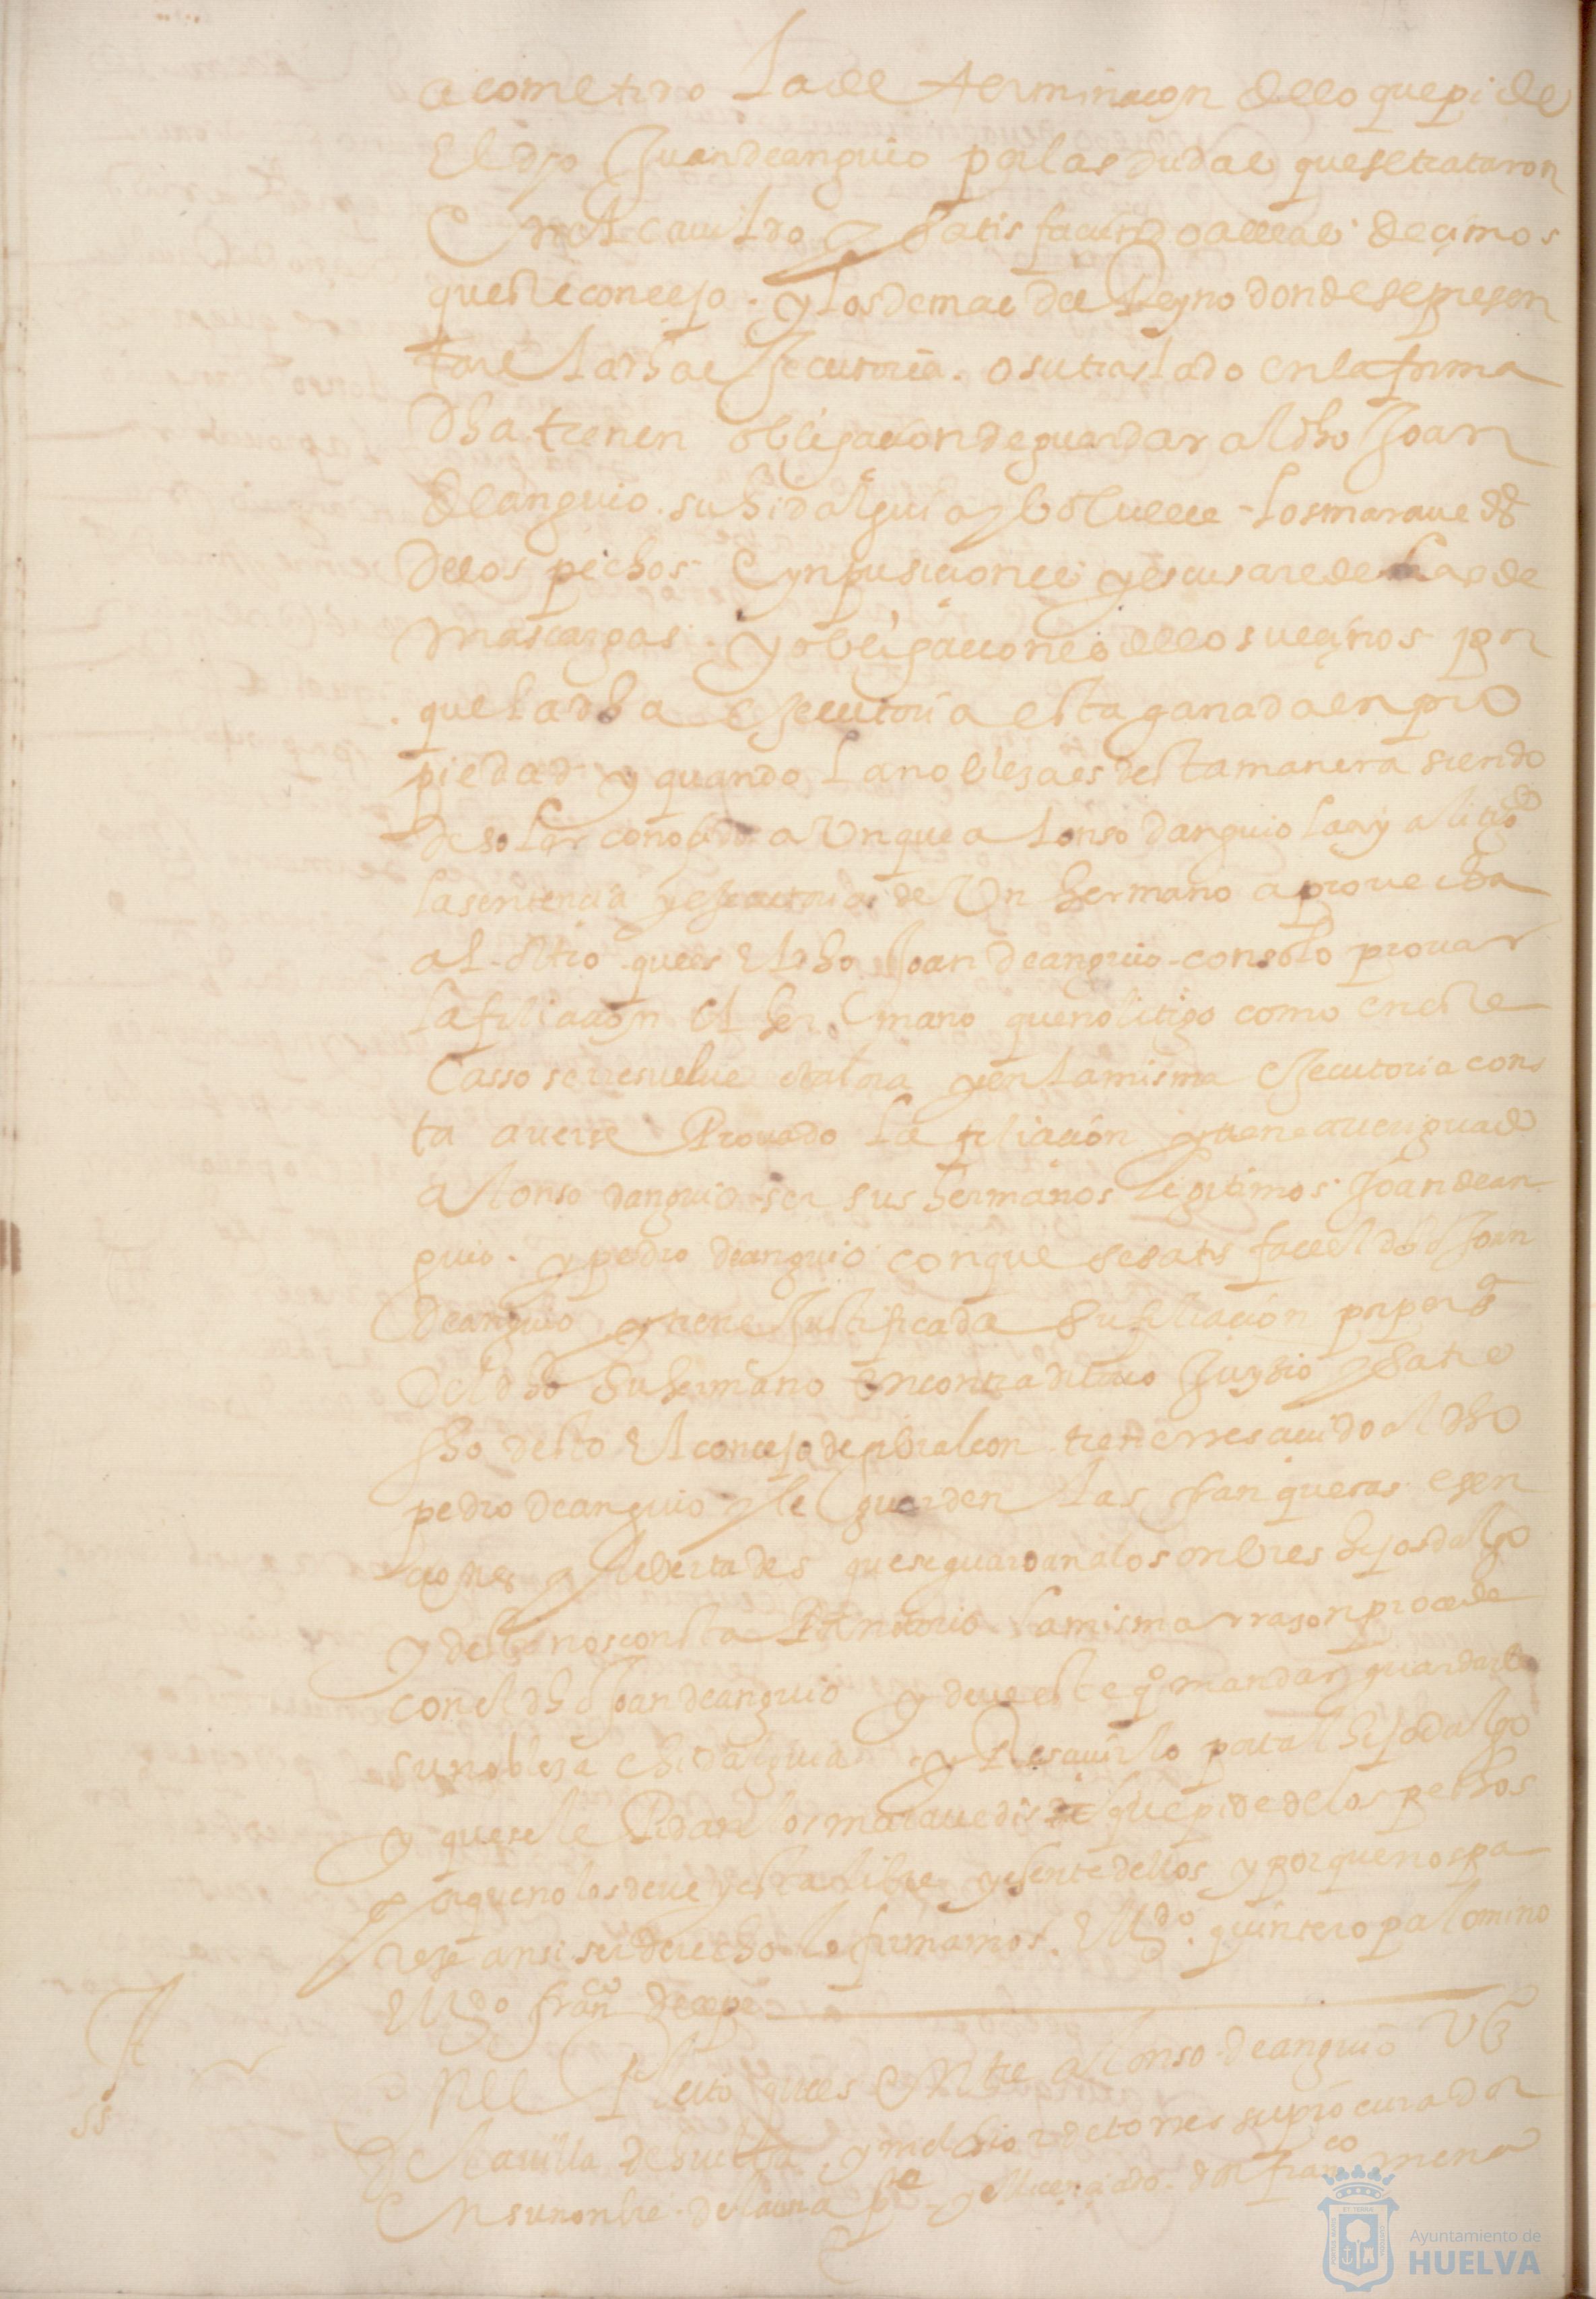 acometido la determinacion dello que pide
El dho Juan de anguio por las dudas que se trataron
En el cauildo y satisfaciendo a ellas decimos
que este concejo y los demas del Reyno donde se presen
tare la dha executoria o su traslado en la forma
dha tienen obligacion de guardar al dho Joan
de anguio su hidalguia y boluelle los marauedis
de los pechos e ynpusiciones y escusarse de las de
mas cargas y obligaciones de los veçinos por
que la dha executoria esta ganada en pro
piedad y quando la nobleza es desta manera siendo
de solar conoçido aunque alonso de anguio la aya litigado
la sentencia y executoria de Un hermano aprovecha
al otro que es el dho Joan de anguio con solo provar
la filiaçion el hermano que no litigo como en este
Casso se resuelve y en la misma executoria cons
ta averse Provado la filiacion y tiene averiguado
alonso de anguio ser sus hermanos legitimos Joan de an
guio y pedro de anguio con que se satisface el dho Joan
de anguio y tiene justificada su filiacion por persona
del dho su hermano en contraditorio Juyzio y satis
fho desto el concejo de gibraleon tiene rresciuido al dho
pedro de anguio y le guarden las franquezas esen
ciones y libertades que se guardan a los onbres hijosdalgo
y desto nos consta la misma rrazon procede
con el dho Joan de anguio y deve este qº mandar guardarle
su nobleza e hidalguia y Resciuirlo por tal hijodalgo
y que se le los maravedis que pide de los pechos
porque no los deve y esta libre y esente dellos y porque nos pa
rese ansi ser derecho lo firmamos El Ldo quintero palomino
El Ldo franco de
En el Pleito que es Entre alonso de anguio Vº
De la villa de huelva y melchior de torres su procurador
En su nonbre de la una pte y el licenciado don franco mena
Ayuntamiento de
HUELVA